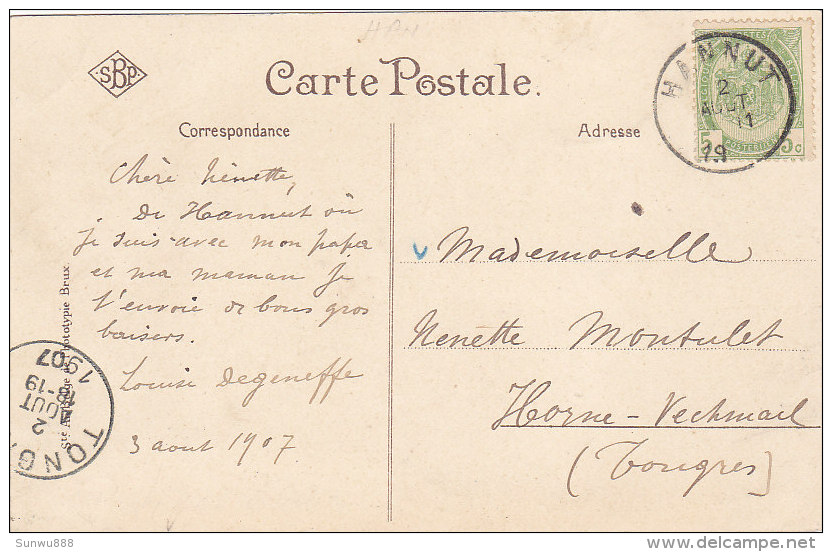 HAN
SBP
Carte Postale.
Correspondance
Adresse
HANNUT
2
AOUT
11
19
5 5c
Chère Nénette,
De Hannut où
je suis avec mon papa
et ma maman je
t'envoie de bons gros
baisers.
Louise Degeneffe
3 aout 1907
v Mademoiselle
Nenette Montulet
Horne-Vechmael
(Tongres)
Phototypie Brux.
TONG
2
AOUT
18-19
1907
Sunwu888
www.delcampe.net